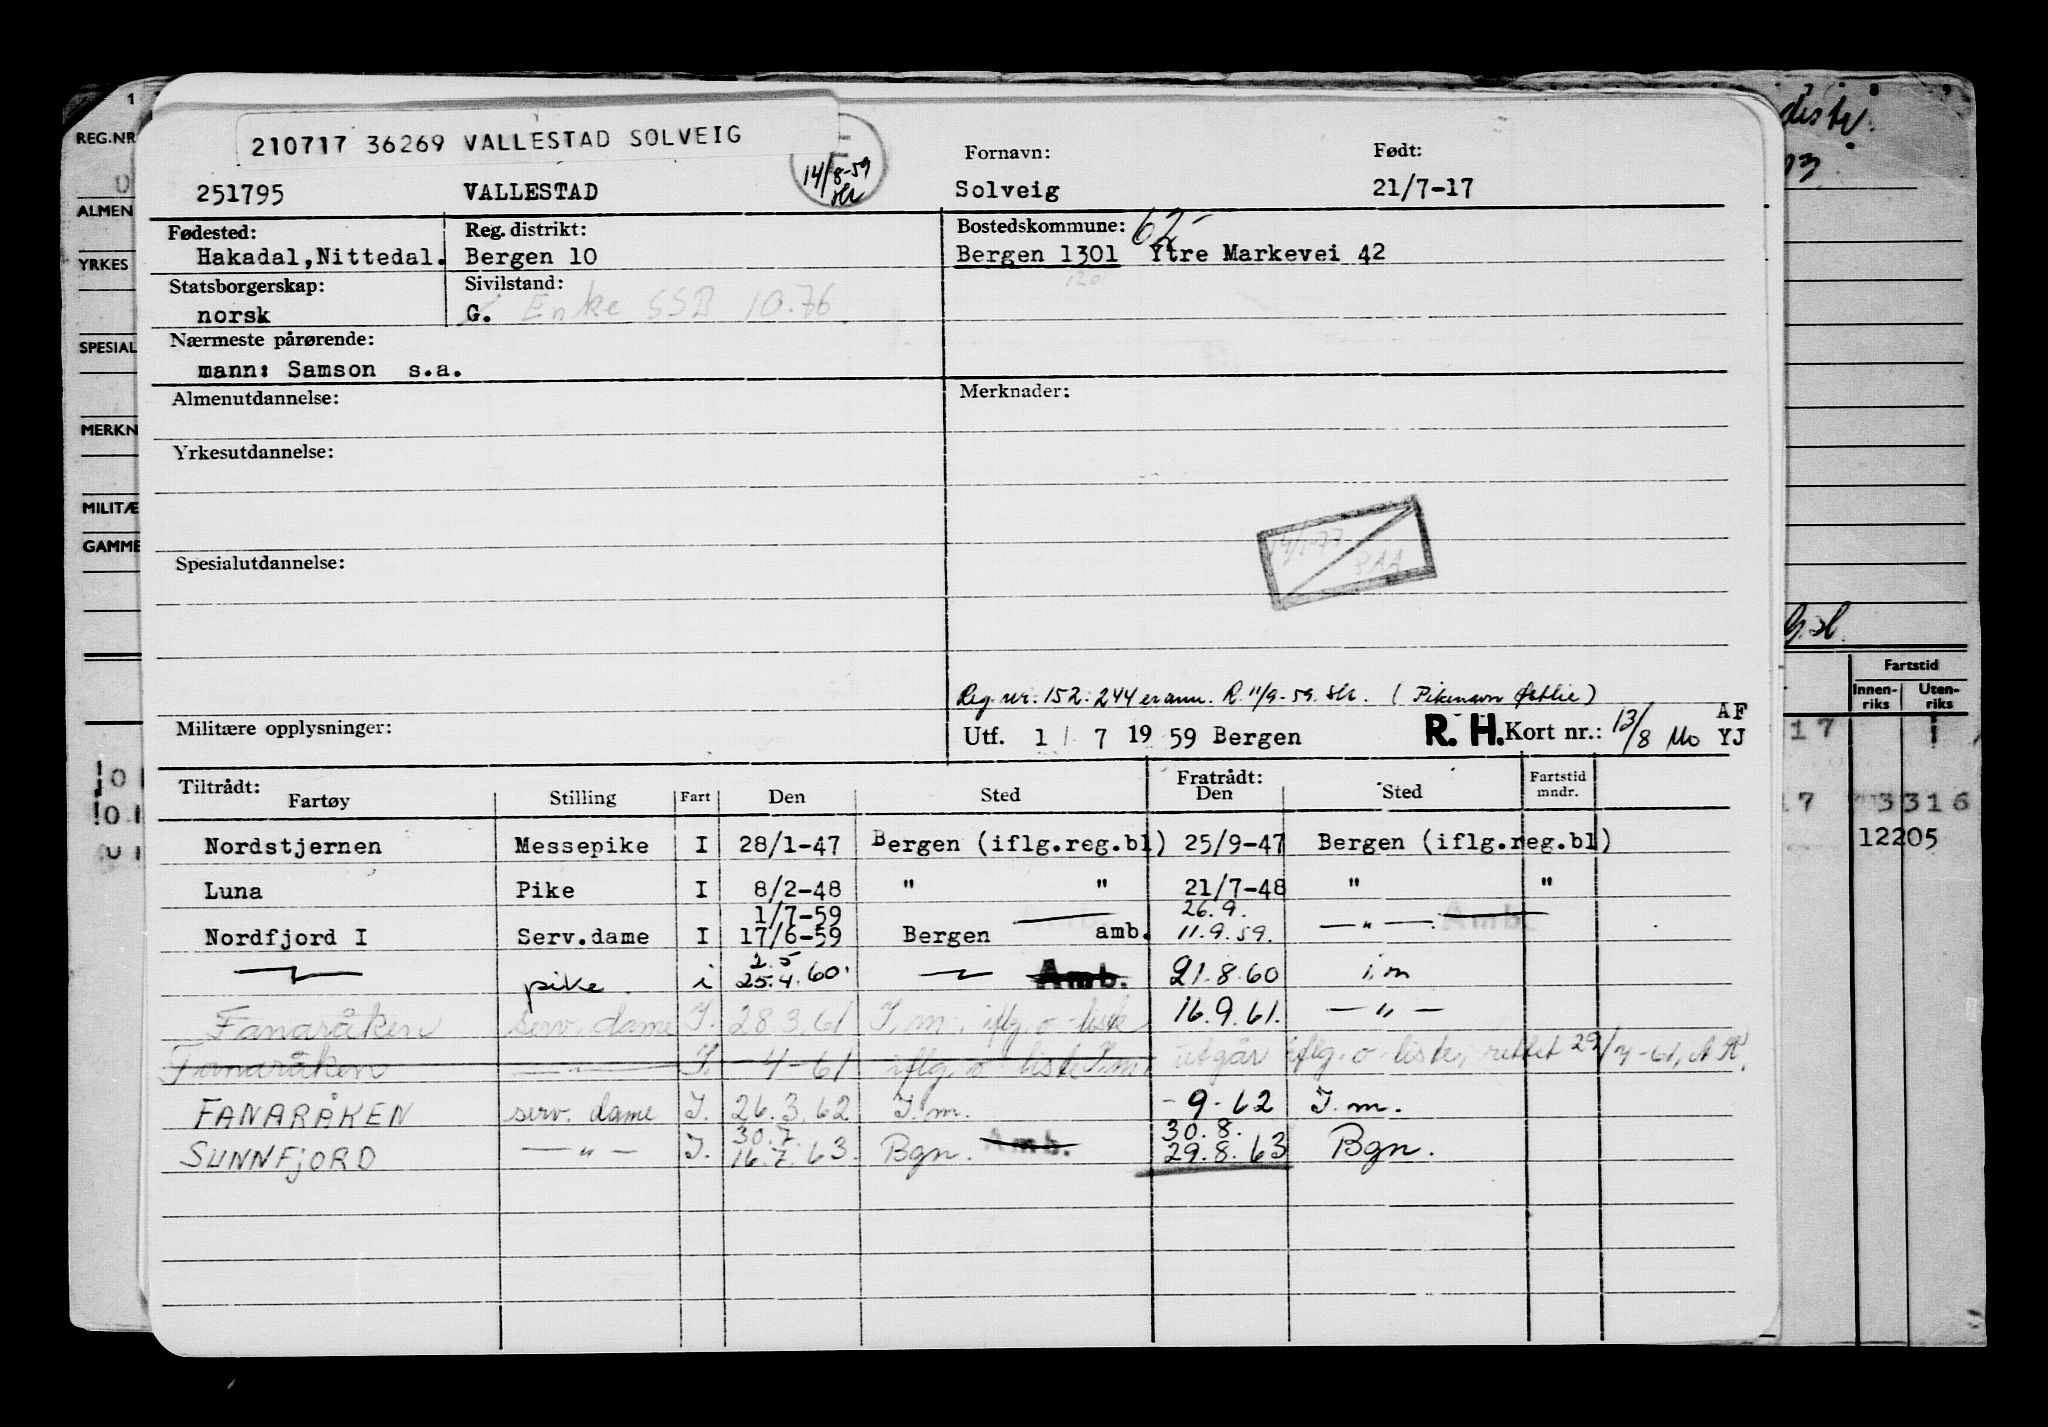 210717 36269 VALLESTAD SOLVEIG
14/8-59
Fornavn: Født:
251795 VALLESTAD Solveig 21/7-17
Fødested: Reg. distrikt: Bostedskommune: 62-
Hakadal,Nittedal. Bergen 10 Bergen 1301 Ytre Markevei 42
Statsborgerskap: Sivilstand:
norsk G. Enke SSB 10.76
Nærmeste pårørende:
mann: Samson s.a.
Almenutdannelse: Merknader:
Yrkesutdannelse:
Spesialutdannelse:
Reg. nr: 152.244 er ann. R. 11/9-59. (Pikenavn Østlie)
Militære opplysninger: Utf. 1 / 7 19 59 Bergen R. H. Kort nr.: 13/8 Mo AF
YJ
Tiltrådt: Fratrådt:
Fartøy Stilling Fart Den Sted Den Sted Fartstid mndr.
Nordstjernen Messepike I 28/1-47 Bergen (iflg.reg.bl) 25/9-47 Bergen (iflg.reg.bl)
Luna Pike I 8/2-48 " " 21/7-48 " "
1/7-59 26.9.
Nordfjord I Serv.dame I 17/6-59 Bergen amb. 11.9.59. — " — Amb.
2.5
pike i 25.4.60. Amb. 21.8.60 i.m
Fanaråken serv. dame I. 28.3.61 I.m. iflg. o-liste 16.9.61. — " —
Fanaråken — " — I. -4-61 iflg. o-liste I.m. utgår iflg. o-liste, rettet 29/4-61,
FANARÅKEN serv. dame I. 26.3.62 I.m. -9-62 I.m.
30.7. 30.8.
SUNNFJORD — " — I. 16.7.63. Bgn. Amb. 29.8.63 Bgn.
1
REG.NR
ALMEN
YRKES
SPESIAL
MERKN
MILITÆ
GAMME
Fartstid
Innen-riks Uten-riks
17
17 3316
12205